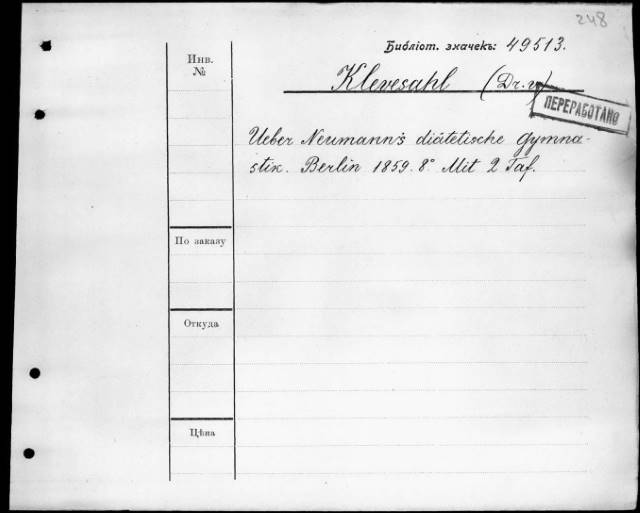 248
Библіот. значекъ: 49513.
Инв.
№
Klevesahl (Dr.
ПЕРЕРАБОТАНО
Ueber Neumann's diätetische Gymna-
stik. Berlin 1859. 8° Mit 2 Taf.
По заказу
Откуда
Цѣна